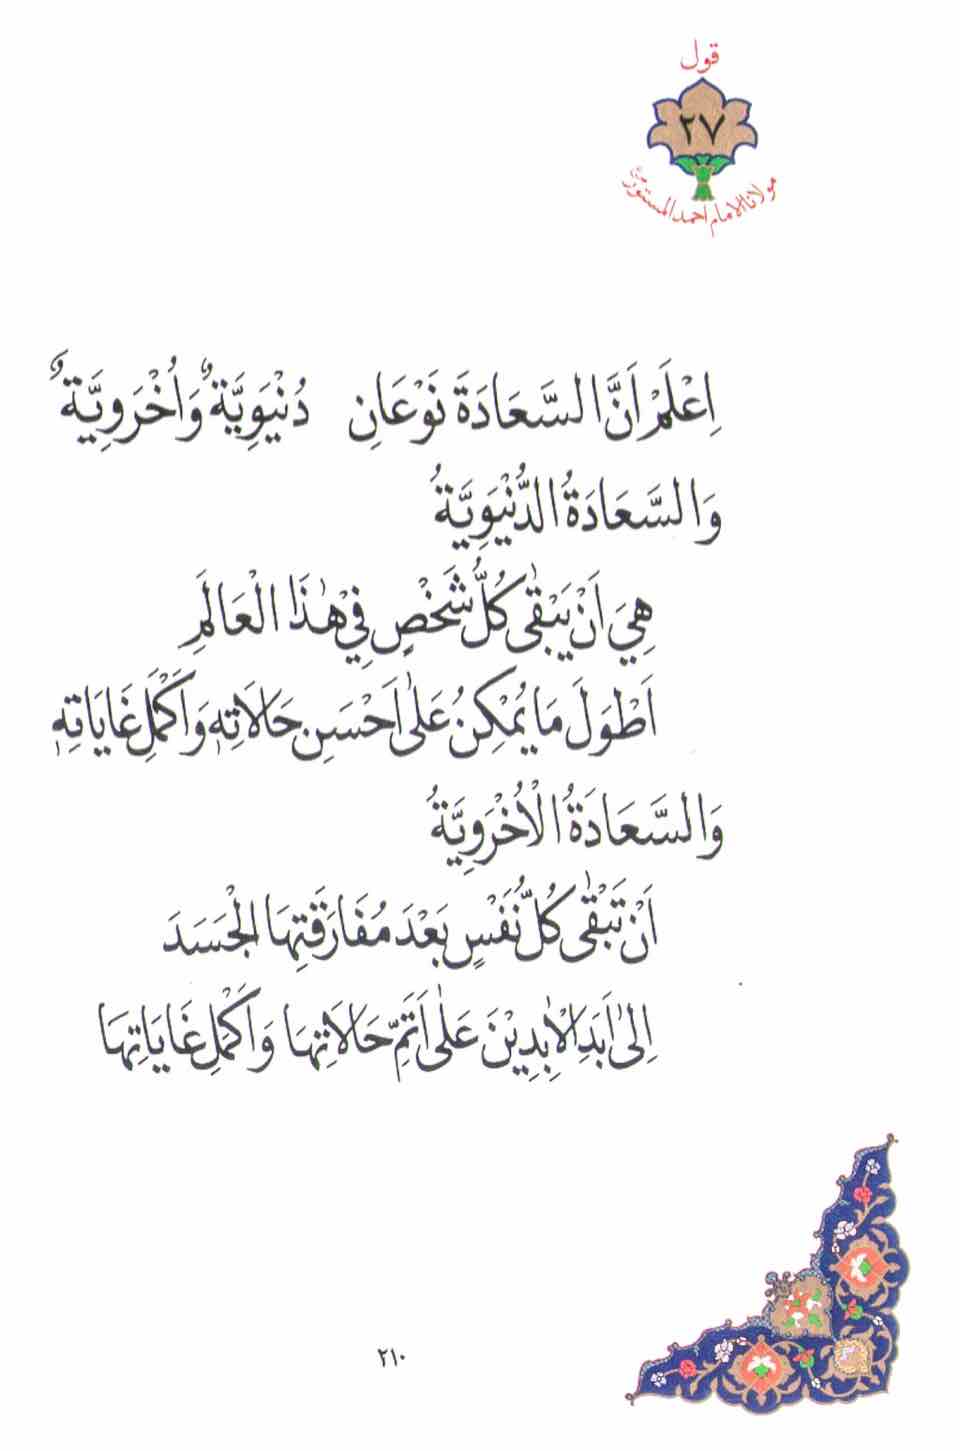 قول
٢٧
مولانا الامام احمد المستور
اِعْلَمْ اَنَّ السَّعَادَةَ نَوْعَانِ دُنْيَوِيَّةٌ وَاُخْرَوِيَّةٌ
وَالسَّعَادَةُ الدُّنْيَوِيَّةُ
هِيَ اَنْ يَبْقٰى كُلُّ شَخْصٍ فِيْ هٰذَا الْعَالَمِ
اَطْوَلَ مَا يُمْكِنُ عَلٰى اَحْسَنِ حَالَاتِهٖ وَاَكْمَلِ غَايَاتِهٖ
وَالسَّعَادَةُ الْاُخْرَوِيَّةُ
اَنْ تَبْقٰى كُلُّ نَفْسٍ بَعْدَ مُفَارَقَتِهَا الْجَسَدَ
اِلٰى اَبَدِ الْاٰبِدِيْنَ عَلٰى اَتَمِّ حَالَاتِهَا وَاَكْمَلِ غَايَاتِهَا
٢١٠